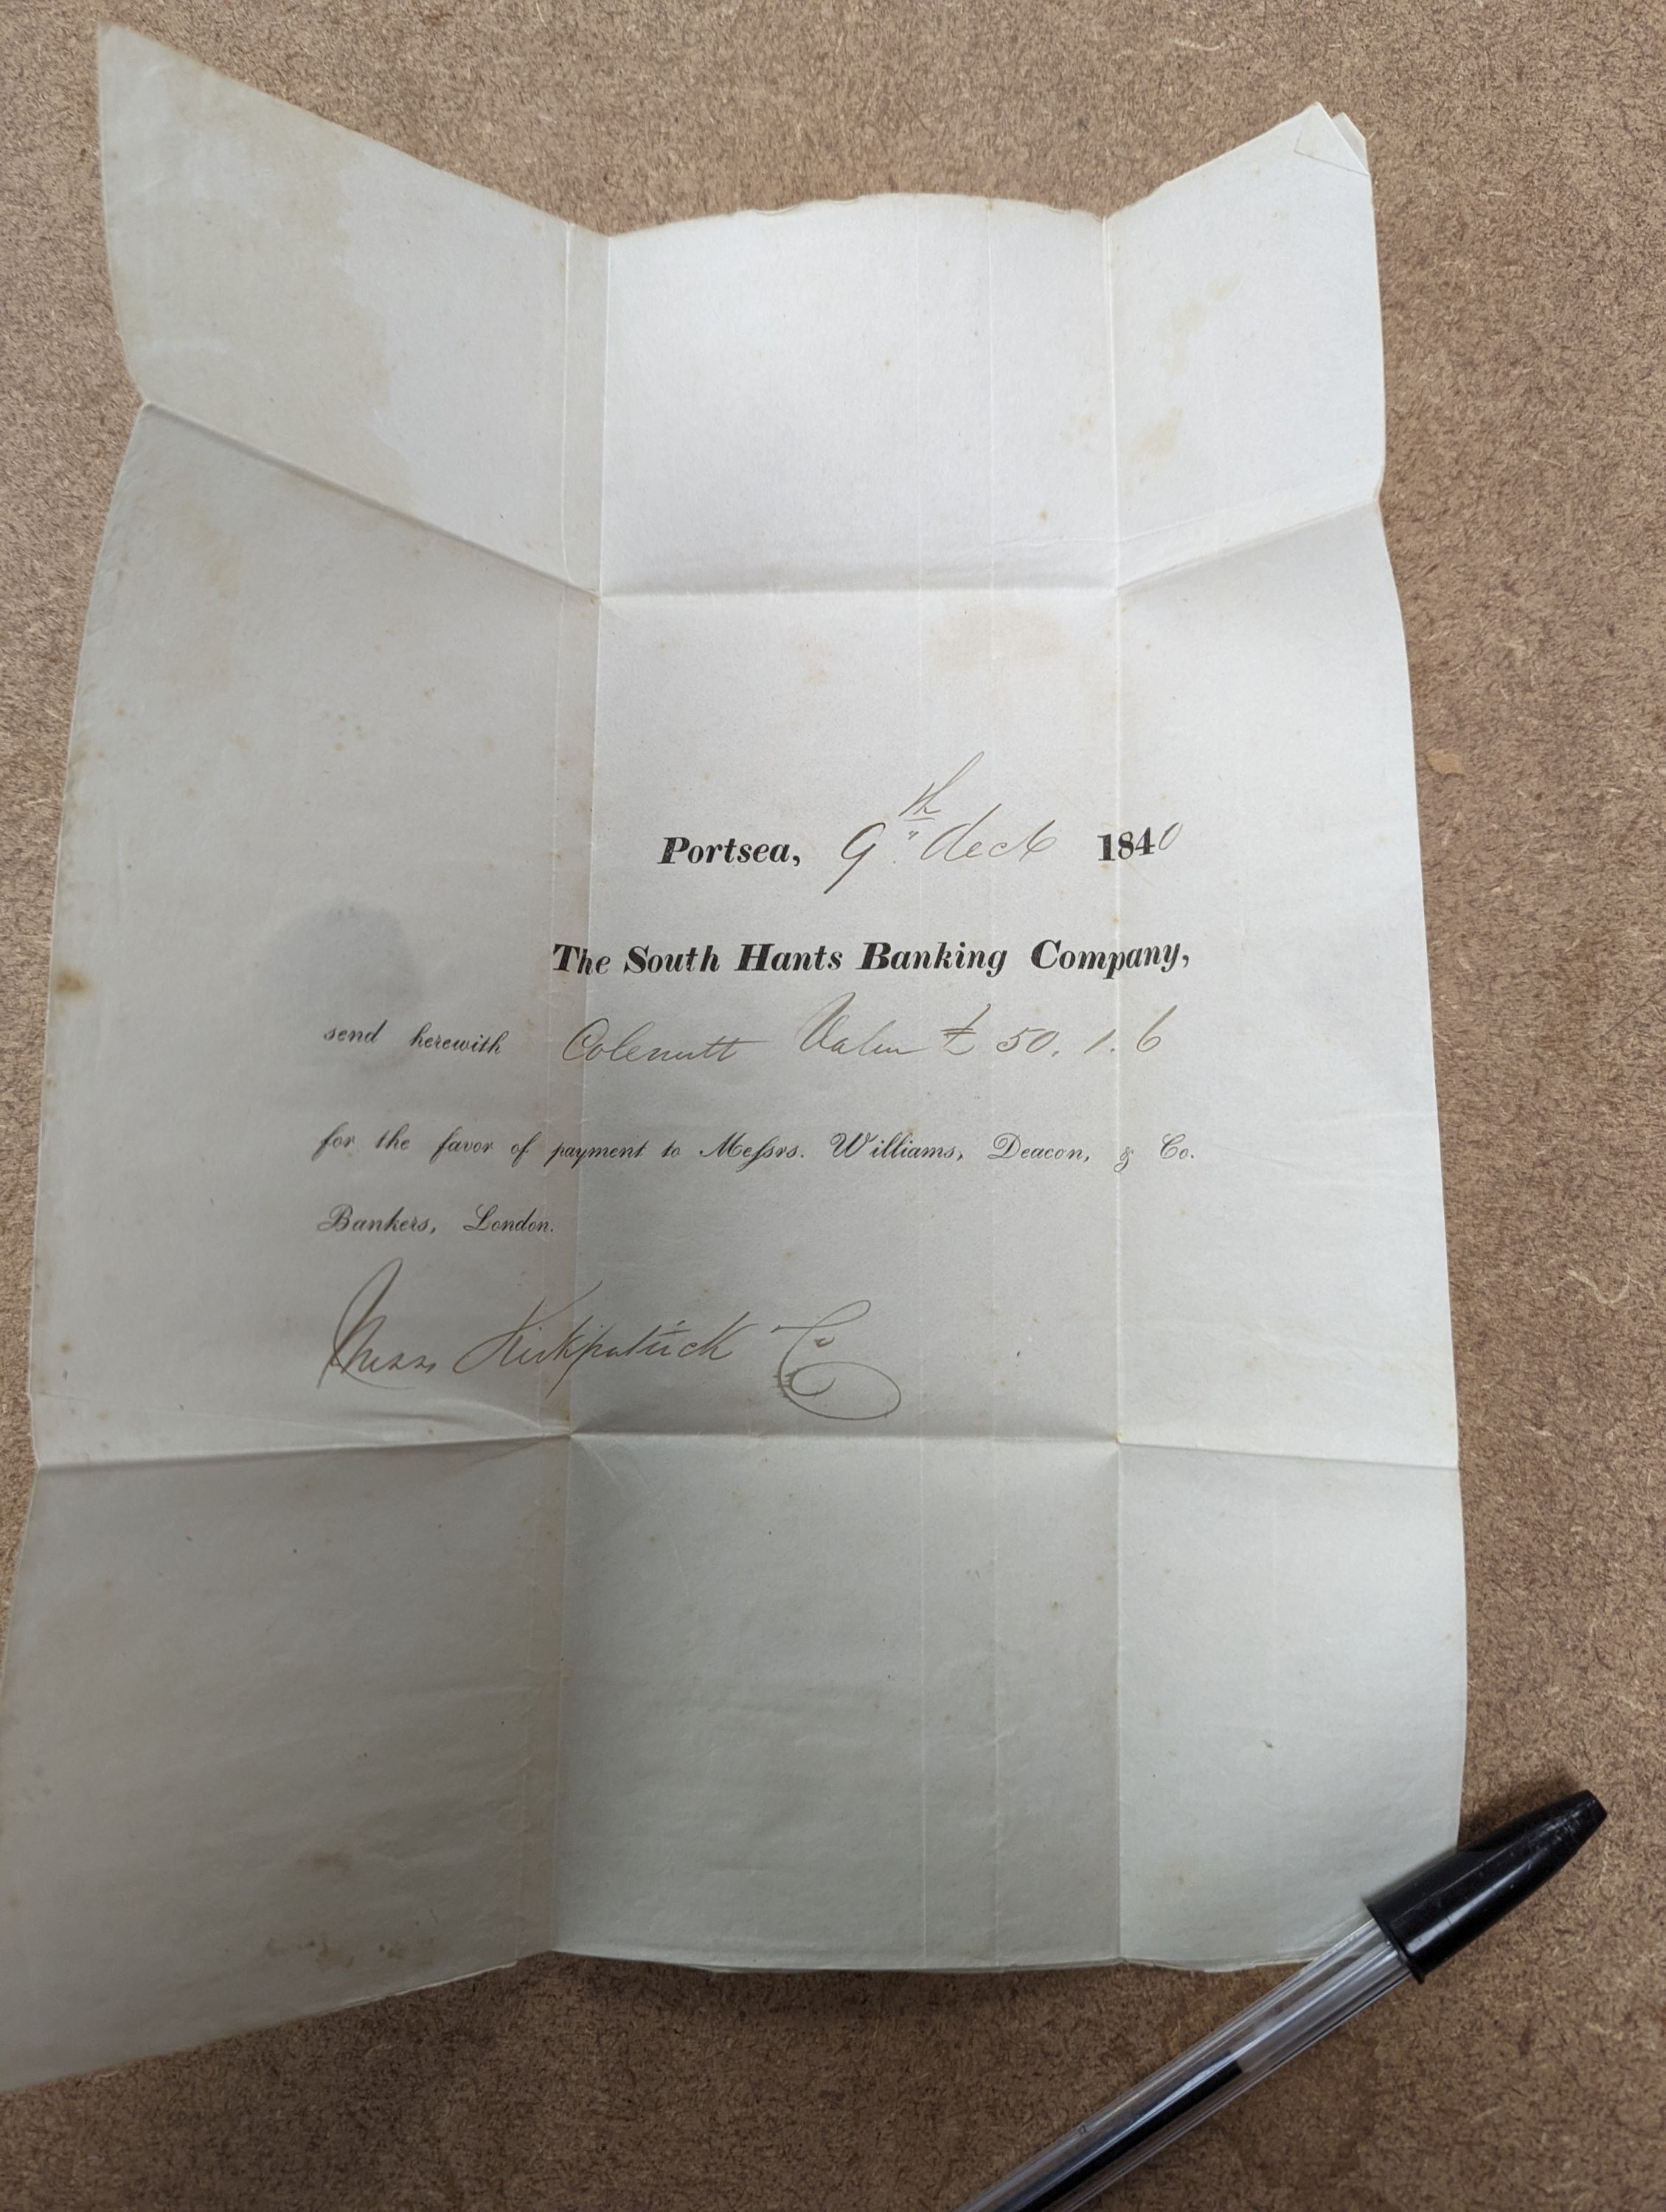 Portsea, 9th Decb 1840
The South Hants Banking Company,
send herewith Colenutt Value £50.1.6
for the favor of payment to Meſsrs. Williams, Deacon, & Co.
Bankers, London.
Messrs Kirkpatrick Co